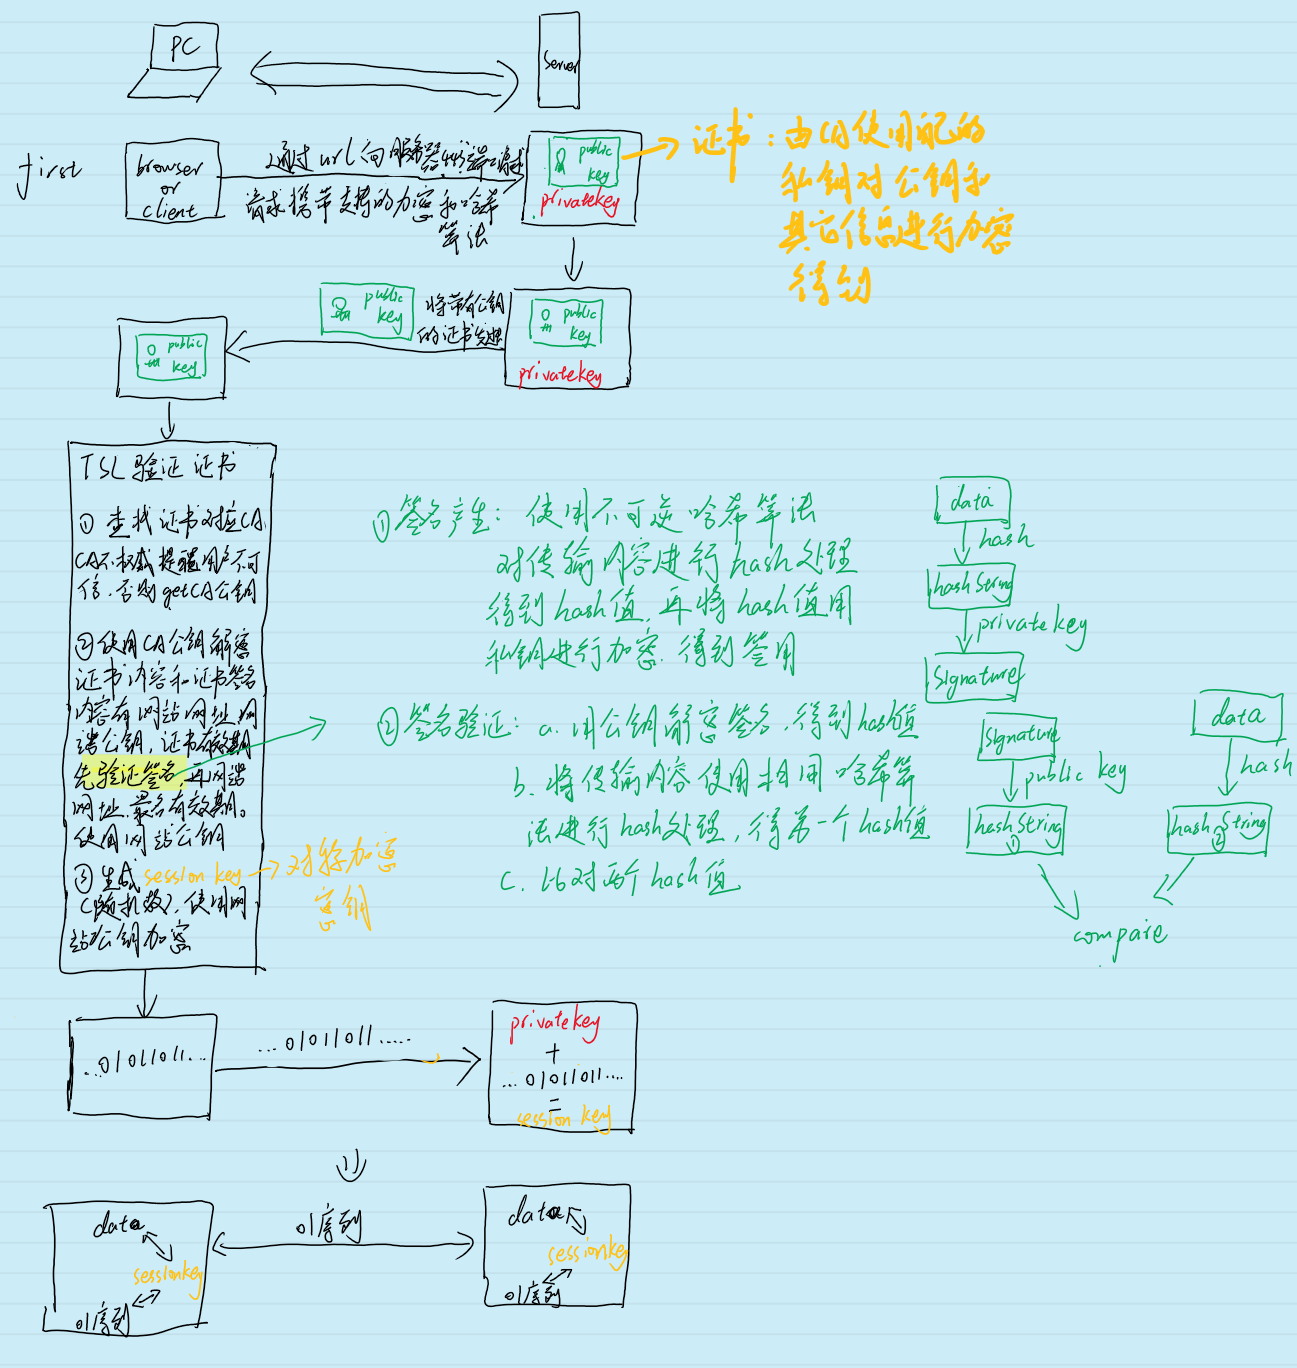 PC
Server
first
browser
or
client
通过url向服务器443端口请求
请求携带支持的加密和哈希
算法
public
key
privatekey
证书：由CA使用配的
私钥对公钥和
其它信息进行加密
得到
public
key
将带有公钥
的证书发出
public
key
privatekey
public
key
TSL验证证书
① 查找证书对应CA,
CA不权威提醒用户不可
信,否则getCA公钥
②使用CA公钥解密
证书内容和证书签名
内容有网站网址,网
站公钥,证书有效期
先验证签名,再网站
网址,最后有效期。
使用网站公钥
③ 生成 session key → 对称加密
密钥
(随机数),使用网
站公钥加密
①签名产生：使用不可逆哈希算法
对传输内容进行hash处理
得到hash值,再将hash值用
私钥进行加密,得到签用
②签名验证：a.用公钥解密签名,得到hash值
b.将传输内容使用相用哈希算
法进行hash处理,得另一个hash值
c.比对两个hash值
data
hash
hashString
privatekey
Signature
Signature
public key
hashString
①
data
hash
hashString
②
compare
...01011011...
...01011011.....
privatekey
+
...01011011....
=
session key
data
sessionkey
01序列
01序列
data
sessionkey
01序列